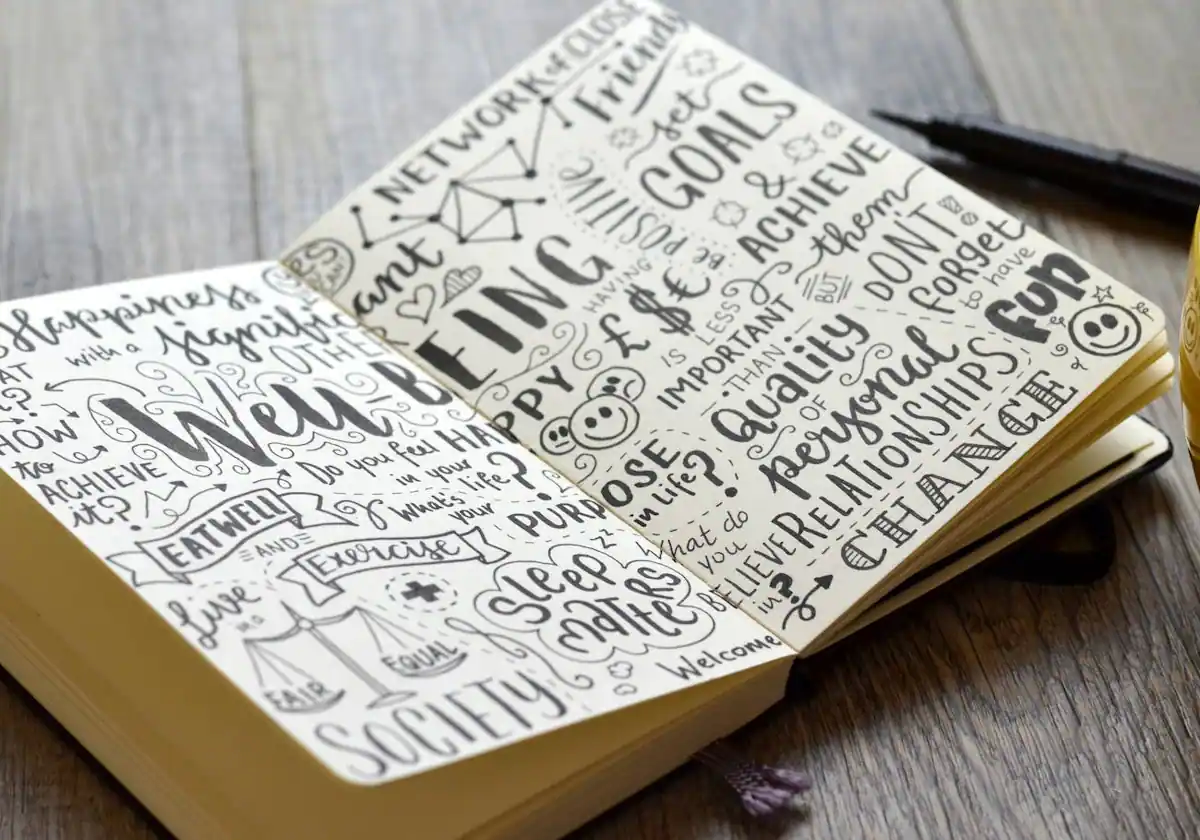 Happiness
with a significant
OTHER
AT
?
HOW
to
ACHIEVE
it?
Well BEING
Do you feel HAPPY
in your
life?
What's
your
PURPOSE
in life?
EATWELL
AND
Exercise
SLEEP
MATTERS
Live
in a
FAIR
EQUAL
SOCIETY
Welcome
CHANGE
NETWORK of CLOSE
Friends
set
GOALS
&
ACHIEVE
them
BE POSITIVE
HAVING
£ $ €
IS LESS
IMPORTANT
THAN
Quality
OF
personal
RELATIONSHIPS
BUT
DON'T
forget
to have
fun
What do
you
BELIEVE
in?